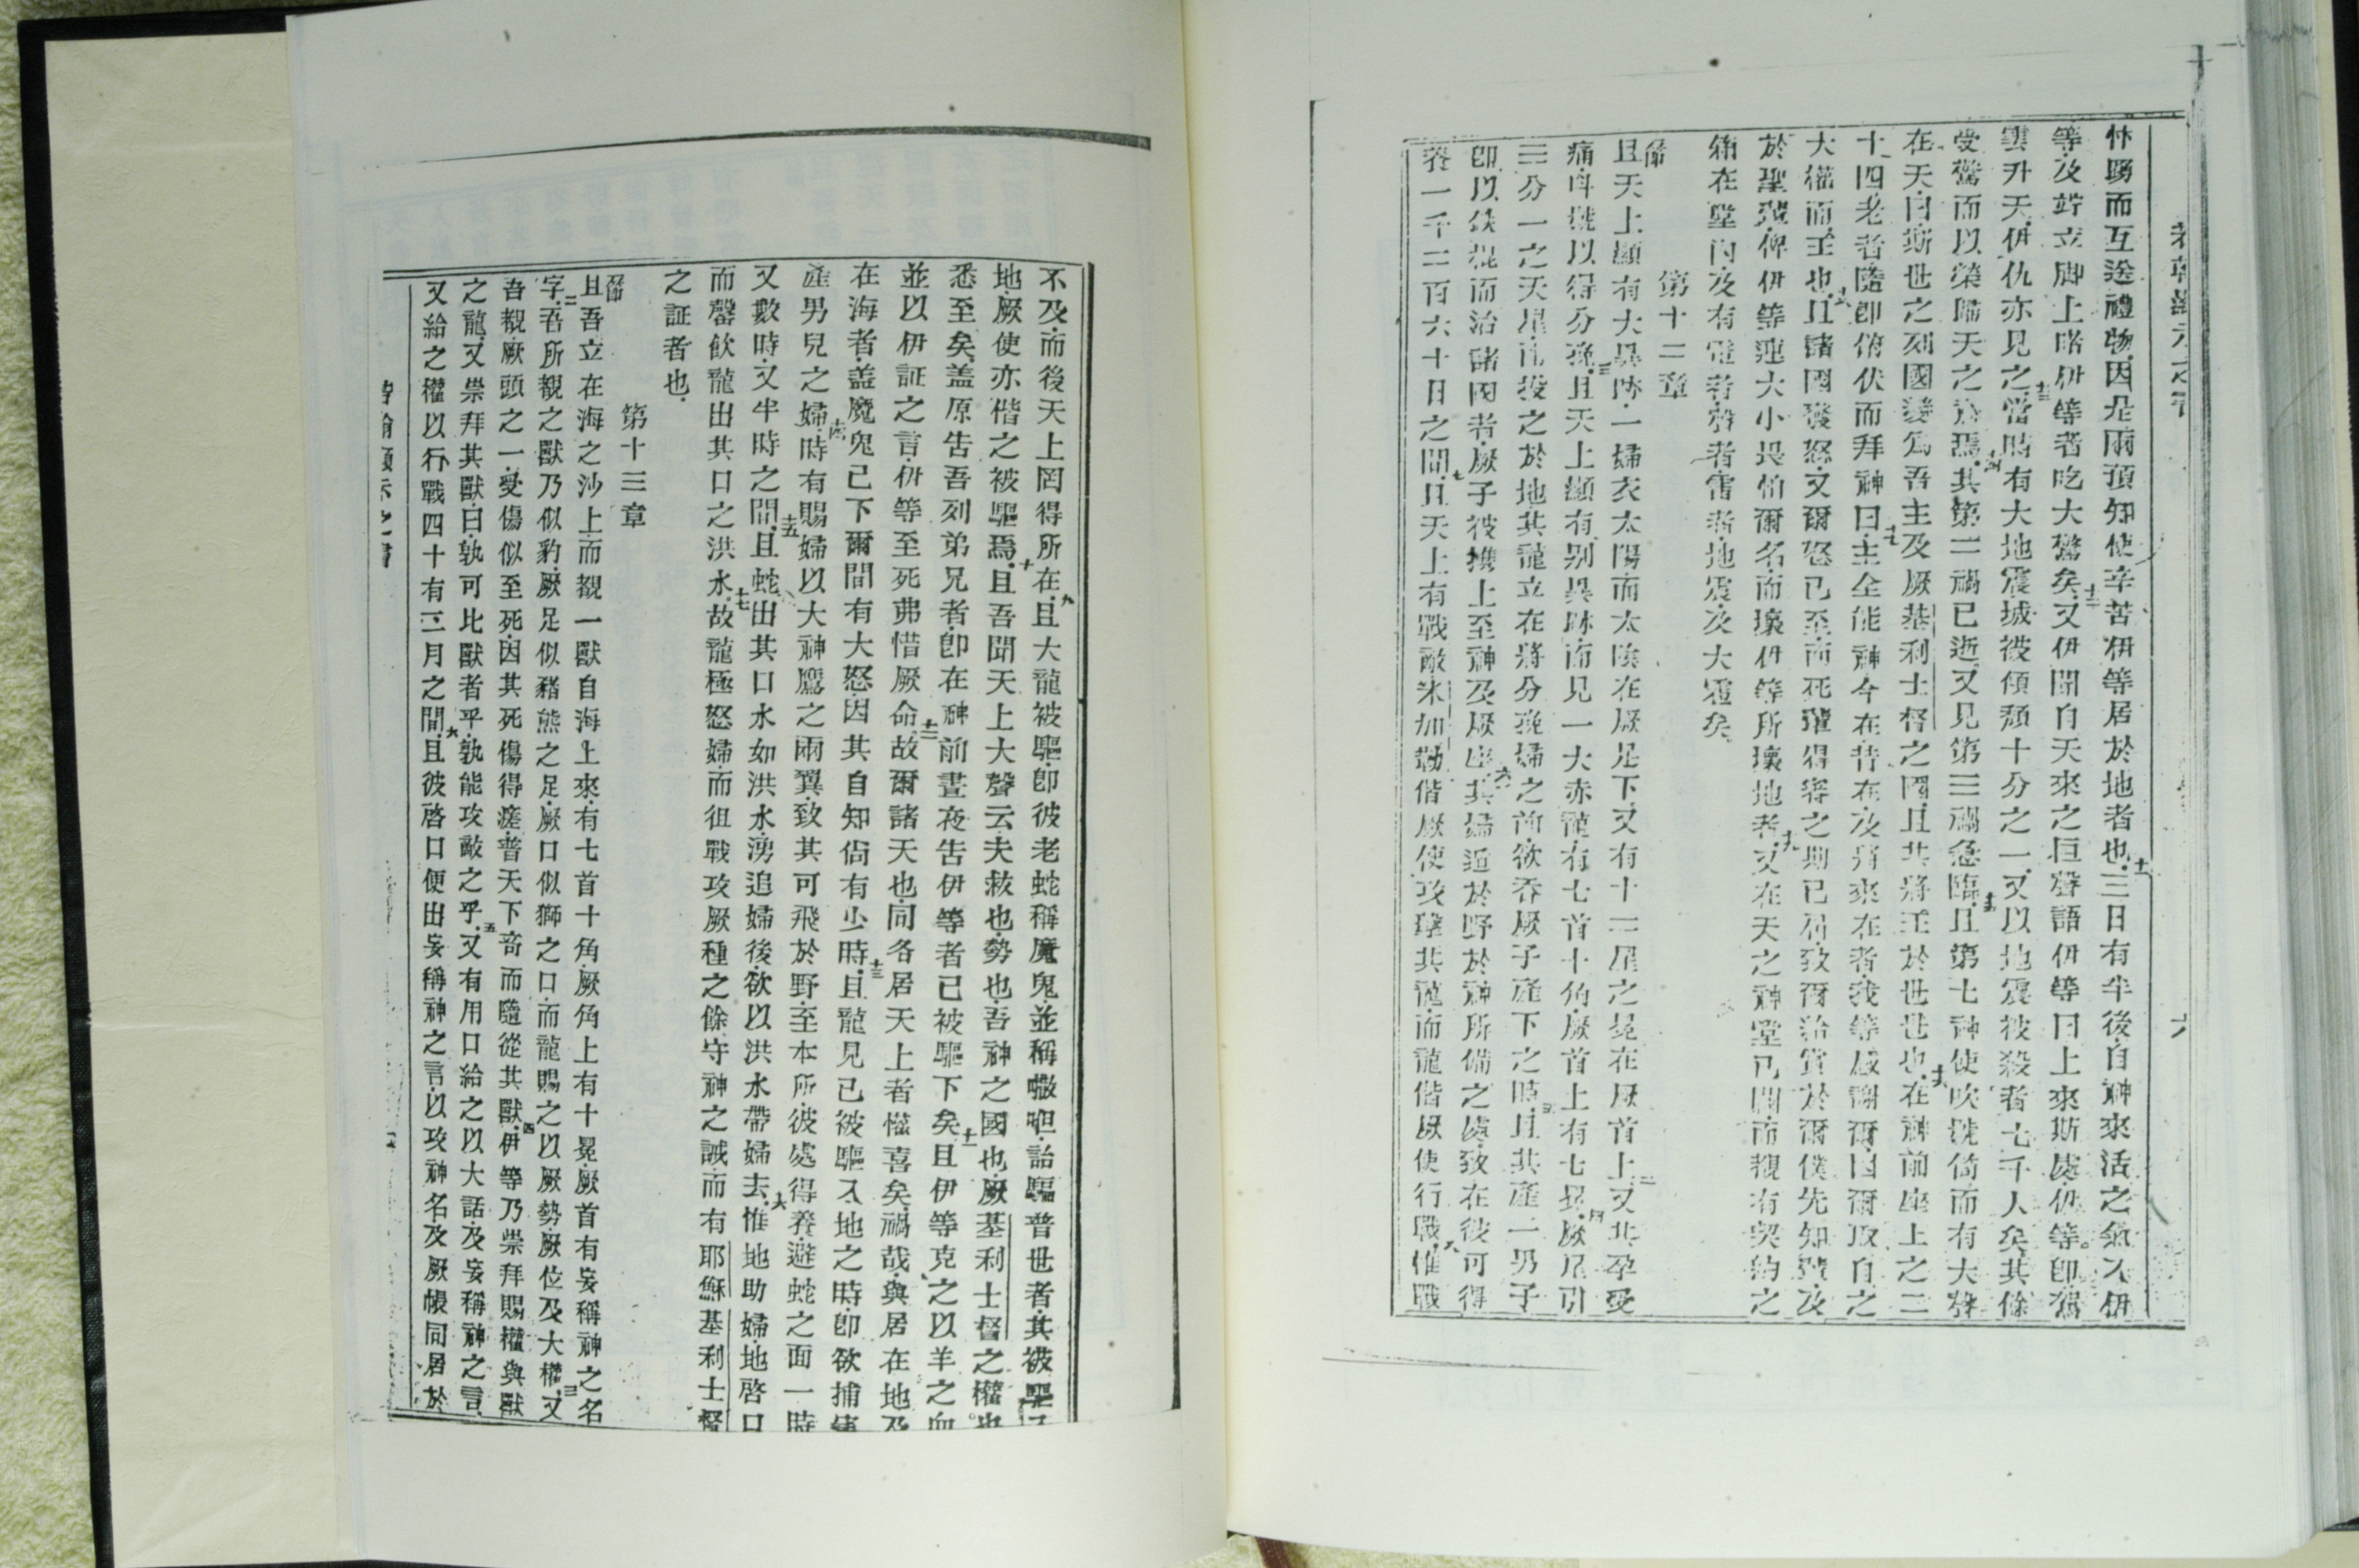 忭賜而互送禮物因是兩預知使辛苦伊等居於地者也十一三日有半後自神來活之氣入伊
等及竚立脚上睹伊等者吃大驚矣十二又伊聞自天來之巨聲語伊等曰上來斯處伊等卽駕
雲升天伊仇亦見之十三當時有大地震城彼傾頽十分之一又以地震被殺者七千人矣其餘
受驚而以榮歸天之神焉十四其第二禍已逝又見第三禍急臨十五且第七神使吹號筒而有大聲
在天曰斯世之列國變爲吾主及厥基利士督之國且其將王於世世也十六在神前座上之二
十四老者隨卽俯伏而拜神曰十七主全能神今在昔在及將來在者我等感謝爾因爾取自之
大權而王也十八且諸國發怒又爾怒已至而死輩得審之期已屆致爾給賞於爾僕先知輩及
於聖輩俾伊等連大小畏怕爾名而壞伊等所壞地者十九又在天之神堂已開而覩有契約之
箱在堂內及有電者聲者雷者地震及大雹矣
第十二章
一節且天上顯有大異跡一婦衣太陽而太陰在厥足下又有十二星之冕在厥首上二又其孕受
痛呌號以得分娩三且天上顯有别異跡而見一大赤龍有七首十角厥首上有七冕四厥尾引
三分一之天星而投之於地其龍立在將分娩婦之前欲吞厥子產下之時五且其產一男子
卽以鐵棍而治諸國者厥子彼攜上至神及厥座六其婦逅於野於神所備之處致在彼可得
養一千二百六十日之間七且天上有戰敵米加勒偕厥使攻擊其龍而龍偕厥使行戰八惟戰
不及而後天上罔得所在九且大龍被驅卽彼老蛇稱魔鬼並稱㘔呾詒騙普世者其被驅
地厥使亦偕之被驅焉十且吾聞天上大聲云夫救也勢也吾神之國也厥基利士督之權也
悉至矣蓋原告吾列弟兄者卽在神前晝夜告伊等者已被驅下矣十一且伊等克之以羊之血
並以伊証之言伊等至死弗惜厥命十二故爾諸天也同各居天上者懽喜矣禍哉與居在地及
在海者蓋魔鬼已下爾間有大怒因其自知尙有少時十三且龍見已被驅入地之時卽欲捕
產男兒之婦十四時有賜婦以大神鷹之兩翼致其可飛於野至本所彼處得養避蛇之面一時
又數時又半時之間十五且蛇出其口水如洪水湧追婦後欲以洪水帶婦去十六惟地助婦地啓口
而罄飲龍出其口之洪水十七故龍極怒婦而徂戰攻厥種之餘守神之誡而有耶穌基利士督
之証者也
第十三章
一節且吾立在海之沙上而覩一獸自海上來有七首十角厥角上有十冕厥首有妄稱神之名
字二吾所覩之獸乃似豹厥足似豬熊之足厥口似獅之口而龍賜之以厥勢厥位及大權三又
吾覩厥頭之一受傷似至死因其死傷得瘥普天下竒而隨從其獸四伊等乃崇拜賜權與獸
之龍又崇拜其獸曰孰可比獸者乎孰能攻敵之乎五又有用口給之以大話及妄稱神之言
又給之權以行戰四十有二月之間六且彼啓口便出妄稱神之言以攻神名及厥帳同居於